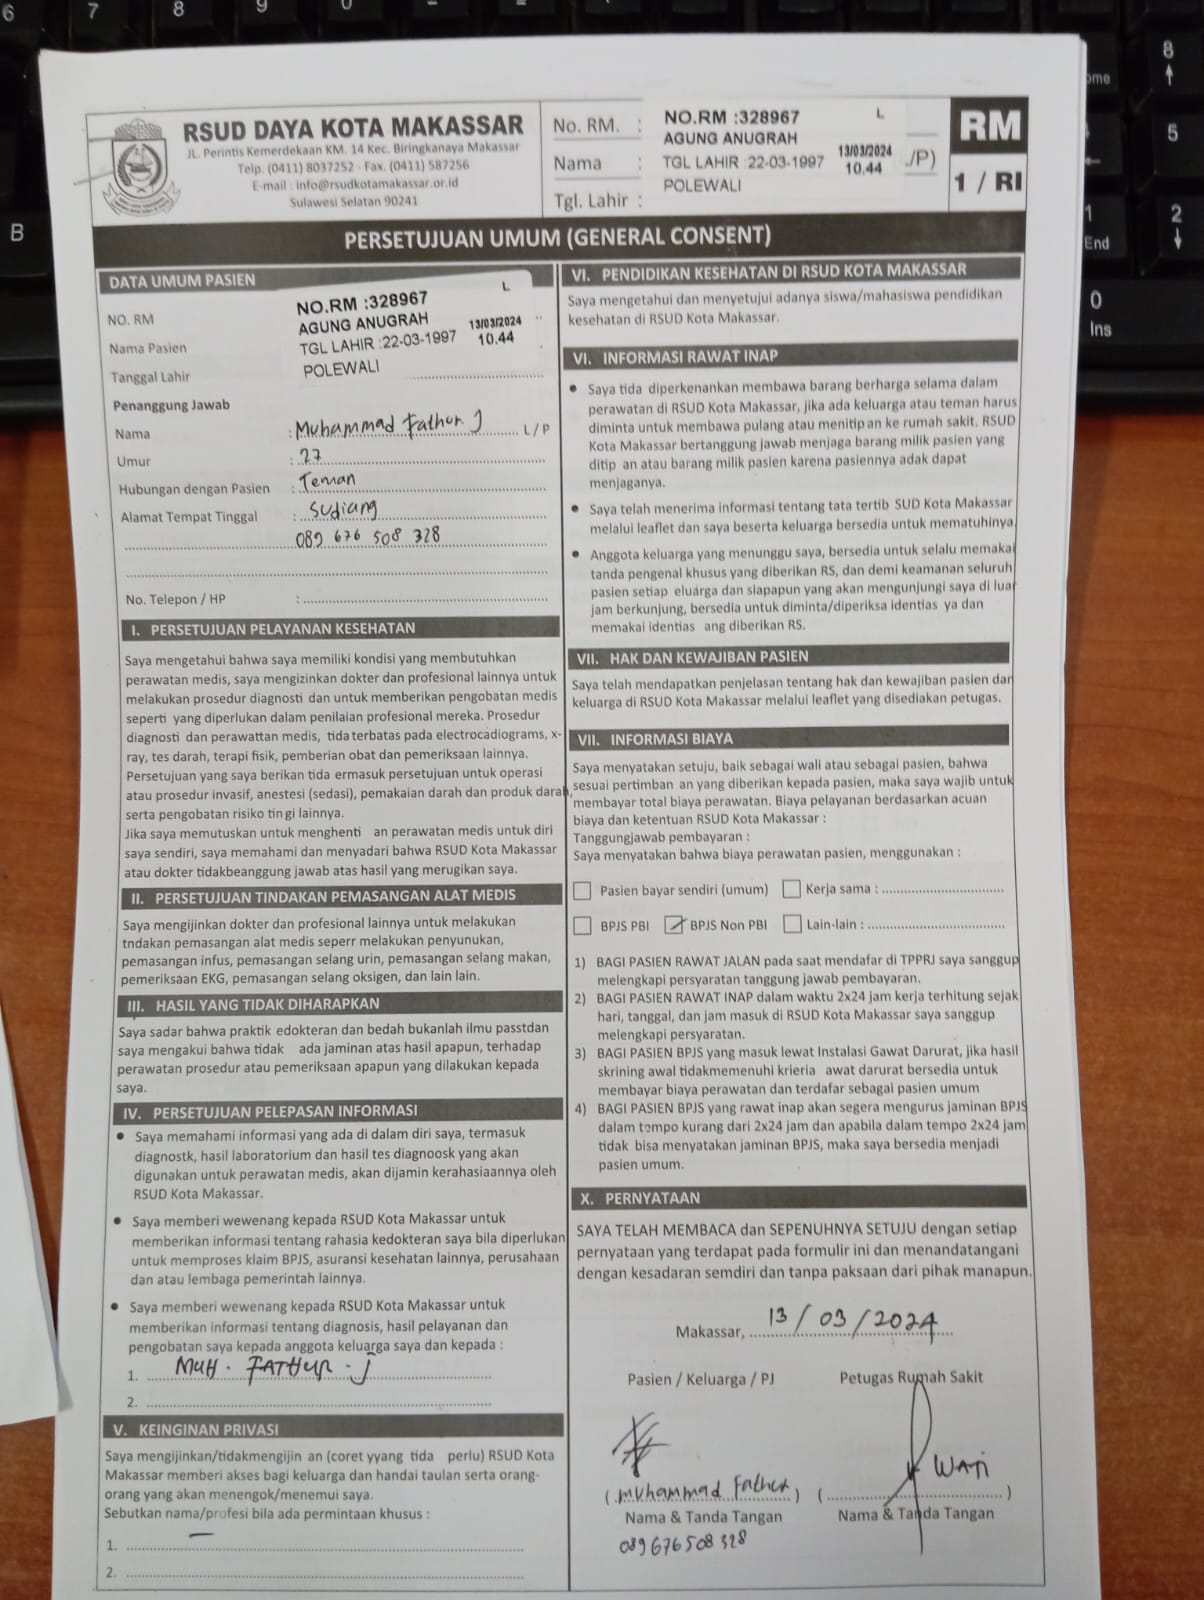 RSUD DAYA KOTA MAKASSAR
JL. Perintis Kemerdekaan KM. 14 Kec. Biringkanaya Makassar
Telp. (0411) 8037252 - Fax. (0411) 587256
E-mail : info@rsudkotamakassar.or.id
Sulawesi Selatan 90241
No. RM. :
Nama :
Tgl. Lahir :
NO.RM :328967 L
AGUNG ANUGRAH
TGL LAHIR :22-03-1997 13/03/2024
POLEWALI 10.44
/P)
RM
1 / RI
PERSETUJUAN UMUM (GENERAL CONSENT)
DATA UMUM PASIEN
NO. RM
Nama Pasien
Tanggal Lahir
NO.RM :328967 L
AGUNG ANUGRAH 13/03/2024
TGL LAHIR :22-03-1997 10.44
POLEWALI
Penanggung Jawab
Nama : Muhammad Fathur J L / P
Umur : 27
Hubungan dengan Pasien : Teman
Alamat Tempat Tinggal : Sudiang
089 676 508 328
No. Telepon / HP :
I. PERSETUJUAN PELAYANAN KESEHATAN
Saya mengetahui bahwa saya memiliki kondisi yang membutuhkan
perawatan medis, saya mengizinkan dokter dan profesional lainnya untuk
melakukan prosedur diagnosti dan untuk memberikan pengobatan medis
seperti yang diperlukan dalam penilaian profesional mereka. Prosedur
diagnosti dan perawattan medis, tida terbatas pada electrocadiograms, x-
ray, tes darah, terapi fisik, pemberian obat dan pemeriksaan lainnya.
Persetujuan yang saya berikan tida ermasuk persetujuan untuk operasi
atau prosedur invasif, anestesi (sedasi), pemakaian darah dan produk darah,
serta pengobatan risiko tin gi lainnya.
Jika saya memutuskan untuk menghenti an perawatan medis untuk diri
saya sendiri, saya memahami dan menyadari bahwa RSUD Kota Makassar
atau dokter tidakbeanggung jawab atas hasil yang merugikan saya.
II. PERSETUJUAN TINDAKAN PEMASANGAN ALAT MEDIS
Saya mengijinkan dokter dan profesional lainnya untuk melakukan
tndakan pemasangan alat medis seperr melakukan penyunukan,
pemasangan infus, pemasangan selang urin, pemasangan selang makan,
pemeriksaan EKG, pemasangan selang oksigen, dan lain lain.
III. HASIL YANG TIDAK DIHARAPKAN
Saya sadar bahwa praktik edokteran dan bedah bukanlah ilmu passtdan
saya mengakui bahwa tidak ada jaminan atas hasil apapun, terhadap
perawatan prosedur atau pemeriksaan apapun yang dilakukan kepada
saya.
IV. PERSETUJUAN PELEPASAN INFORMASI
• Saya memahami informasi yang ada di dalam diri saya, termasuk
diagnostk, hasil laboratorium dan hasil tes diagnoosk yang akan
digunakan untuk perawatan medis, akan dijamin kerahasiaannya oleh
RSUD Kota Makassar.
• Saya memberi wewenang kepada RSUD Kota Makassar untuk
memberikan informasi tentang rahasia kedokteran saya bila diperlukan
untuk memproses klaim BPJS, asuransi kesehatan lainnya, perusahaan
dan atau lembaga pemerintah lainnya.
• Saya memberi wewenang kepada RSUD Kota Makassar untuk
memberikan informasi tentang diagnosis, hasil pelayanan dan
pengobatan saya kepada anggota keluarga saya dan kepada :
1. MUH. FATHUR. J
2.
V. KEINGINAN PRIVASI
Saya mengijinkan/tidakmengijin an (coret yyang tida perlu) RSUD Kota
Makassar memberi akses bagi keluarga dan handai taulan serta orang-
orang yang akan menengok/menemui saya.
Sebutkan nama/profesi bila ada permintaan khusus :
1.
2.
VI. PENDIDIKAN KESEHATAN DI RSUD KOTA MAKASSAR
Saya mengetahui dan menyetujui adanya siswa/mahasiswa pendidikan
kesehatan di RSUD Kota Makassar.
VI. INFORMASI RAWAT INAP
• Saya tida diperkenankan membawa barang berharga selama dalam
perawatan di RSUD Kota Makassar, jika ada keluarga atau teman harus
diminta untuk membawa pulang atau menitip an ke rumah sakit. RSUD
Kota Makassar bertanggung jawab menjaga barang milik pasien yang
ditip an atau barang milik pasien karena pasiennya adak dapat
menjaganya.
• Saya telah menerima informasi tentang tata tertib SUD Kota Makassar
melalui leaflet dan saya beserta keluarga bersedia untuk mematuhinya.
• Anggota keluarga yang menunggu saya, bersedia untuk selalu memakai
tanda pengenal khusus yang diberikan RS, dan demi keamanan seluruh
pasien setiap eluarga dan siapapun yang akan mengunjungi saya di luar
jam berkunjung, bersedia untuk diminta/diperiksa identias ya dan
memakai identias ang diberikan RS.
VII. HAK DAN KEWAJIBAN PASIEN
Saya telah mendapatkan penjelasan tentang hak dan kewajiban pasien dan
keluarga di RSUD Kota Makassar melalui leaflet yang disediakan petugas.
VII. INFORMASI BIAYA
Saya menyatakan setuju, baik sebagai wali atau sebagai pasien, bahwa
sesuai pertimban an yang diberikan kepada pasien, maka saya wajib untuk
membayar total biaya perawatan. Biaya pelayanan berdasarkan acuan
biaya dan ketentuan RSUD Kota Makassar :
Tanggungjawab pembayaran :
Saya menyatakan bahwa biaya perawatan pasien, menggunakan :
Pasien bayar sendiri (umum) Kerja sama :
BPJS PBI BPJS Non PBI Lain-lain :
1) BAGI PASIEN RAWAT JALAN pada saat mendafar di TPPRJ saya sanggup
melengkapi persyaratan tanggung jawab pembayaran.
2) BAGI PASIEN RAWAT INAP dalam waktu 2x24 jam kerja terhitung sejak
hari, tanggal, dan jam masuk di RSUD Kota Makassar saya sanggup
melengkapi persyaratan.
3) BAGI PASIEN BPJS yang masuk lewat Instalasi Gawat Darurat, jika hasil
skrining awal tidakmemenuhi krieria awat darurat bersedia untuk
membayar biaya perawatan dan terdafar sebagai pasien umum
4) BAGI PASIEN BPJS yang rawat inap akan segera mengurus jaminan BPJS
dalam tempo kurang dari 2x24 jam dan apabila dalam tempo 2x24 jam
tidak bisa menyatakan jaminan BPJS, maka saya bersedia menjadi
pasien umum.
X. PERNYATAAN
SAYA TELAH MEMBACA dan SEPENUHNYA SETUJU dengan setiap
pernyataan yang terdapat pada formulir ini dan menandatangani
dengan kesadaran semdiri dan tanpa paksaan dari pihak manapun.
Makassar, 13 / 03 / 2024
Pasien / Keluarga / PJ Petugas Rumah Sakit
WATI
(Muhammad Fathur) ( )
Nama & Tanda Tangan Nama & Tanda Tangan
089 676 508 328